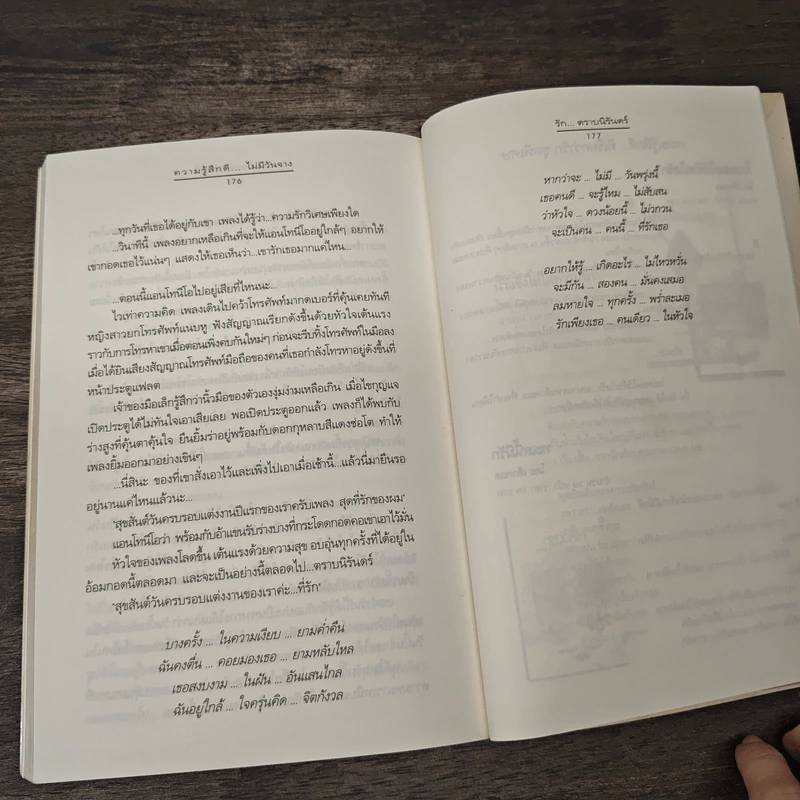 ความรู้สึกดี... ไม่มีวันจาง
176
...ทุกวันที่เธอได้อยู่กับเขา เพลงได้รู้ว่า...ความรักวิเศษเพียงใด
...วินาทีนี้ เพลงอยากเหลือเกินที่จะให้แอนโทนีโออยู่ใกล้ๆ อยากให้
เขากอดเธอไว้แน่นๆ แสดงให้เธอเห็นว่า...เขารักเธอมากแค่ไหน...
...ตอนนี้แอนโทนีโอไปอยู่เสียที่ไหนนะ...
ไวเท่าความคิด เพลงเดินไปคว้าโทรศัพท์มากดเบอร์ที่คุ้นเคยทันที
หญิงสาวยกโทรศัพท์แนบหู ฟังสัญญาณเรียกดังขึ้นด้วยหัวใจเต้นแรง
ราวกับการโทรหาเขาเมื่อตอนเพิ่งคบกันใหม่ๆ ก่อนจะรีบทิ้งโทรศัพท์ในมือลง
เมื่อได้ยินเสียงสัญญาณโทรศัพท์มือถือของคนที่เธอกำลังโทรหาอยู่ดังขึ้นที่
หน้าประตูแฟลต
เจ้าของมือเล็กรู้สึกว่านิ้วมือของตัวเองงุ่มง่ามเหลือเกิน เมื่อไขกุญแจ
เปิดประตูได้ไม่ทันใจเอาเสียเลย พอเปิดประตูออกแล้ว เพลงก็ได้พบกับ
ร่างสูงที่คุ้นตาคุ้นใจ ยืนยิ้มร่าอยู่พร้อมกับดอกกุหลาบสีแดงช่อโต ทำให้
เพลงยิ้มออกมาอย่างเขินๆ
...นี่สินะ ของที่เขาสั่งเอาไว้และเพิ่งไปเอาเมื่อเช้านี้...แล้วนี่มายืนรอ
อยู่นานแค่ไหนแล้วนะ...
"สุขสันต์วันครบรอบแต่งงานปีแรกของเราครับเพลง สุดที่รักของผม"
แอนโทนีโอว่า พร้อมกับอ้าแขนรับร่างบางที่กระโดดกอดคอเขาเอาไว้มั่น
หัวใจของเพลงโลดขึ้น เต้นแรงด้วยความสุข อบอุ่นทุกครั้งที่ได้อยู่ใน
อ้อมกอดนี้ตลอดมา และจะเป็นอย่างนี้ตลอดไป...ตราบนิรันดร์
"สุขสันต์วันครบรอบแต่งงานของเราค่ะ...ที่รัก"
บางครั้ง ... ในความเงียบ ... ยามค่ำคืน
ฉันคงตื่น ... คอยมองเธอ ... ยามหลับใหล
เธอสงบงาม ... ในฝัน ... อันแสนไกล
ฉันอยู่ใกล้ ... ใจครุ่นคิด ... จิตกังวล
รัก... ตราบนิรันดร์
177
หากว่าจะ ... ไม่มี ... วันพรุ่งนี้
เธอคนดี ... จะรู้ไหม ... ไม่สับสน
ว่าหัวใจ ... ดวงน้อยนี้ ... ไม่วกวน
จะเป็นคน ... คนนี้ ... ที่รักเธอ
อยากให้รู้ ... เกิดอะไร ... ไม่ไหวหวั่น
จะมีกัน ... สองคน ... มั่นคงเสมอ
ลมหายใจ ... ทุกครั้ง ... พร่ำละเมอ
รักเพียงเธอ ... คนเดียว ... ในหัวใจ